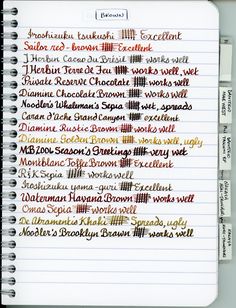 BROWN
Iroshizuku tsukushi Excellent
Sailor red-brown Excellent
J Herbin Cacao du Brésil works well
J Herbin Terre de Feu works well, wet
Private Reserve Chocolate works well
Diamine Chocolate Brown works well
Noodler's Whaleman's Sepia wet, spreads
Caran d'Ache Grand Canyon excellent
Diamine Rustic Brown works well
Diamine Golden Brown works well, ugly
MB 2006 Season's Greetings very wet
Montblanc Toffee Brown Excellent
R&K Sepia works well
Iroshizuku yama-guri Excellent
Waterman Havana Brown works well
Omas Sepia works well
De Atramentis Khaki Spreads, ugly
Noodler's Brooklyn Brown works well